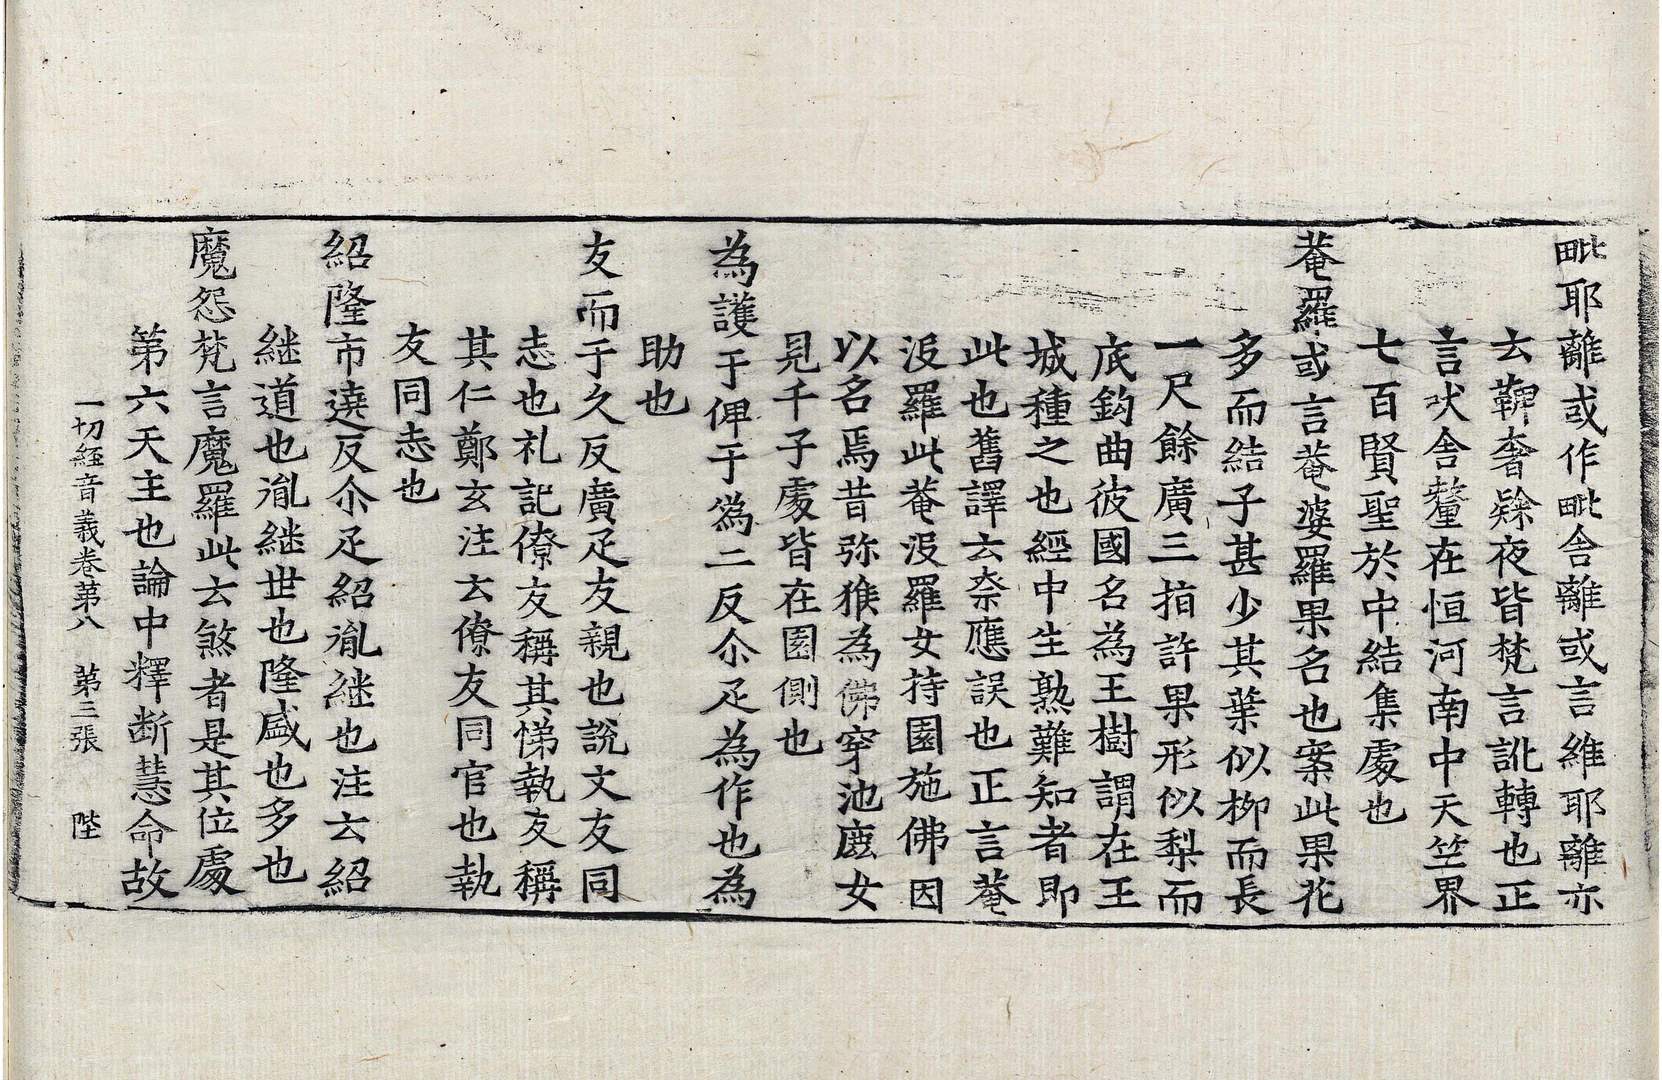 毗耶離或作毗舍離或言維耶離亦
云鞞奢隸夜皆梵言訛轉也正
言吠舍釐在恒河南中天竺界
七百賢聖於中結集處也
菴羅或言菴婆羅果名也案此果花
多而結子甚少其葉似柳而長
一尺餘廣三指許果形似梨而
底鈎曲彼國名為王樹謂在王
城種之也經中生熟難知者即
此也舊譯云柰應誤也正言菴
沒羅此菴沒羅女持園施佛因
以名焉昔弥猴為佛穿池鹿女
見千子處皆在園側也
為護于俾于為二反尒疋為作也為
助也
友而于久反廣疋友親也說文友同
志也礼記僚友稱其悌執友稱
其仁鄭玄注云僚友同官也執
友同志也
紹隆市遶反尒疋紹胤継也注云紹
継道也胤継世也隆盛也多也
魔怨梵言魔羅此云煞者是其位處
第六天主也論中釋断慧命故
一切經音義卷第八 第三張 陛